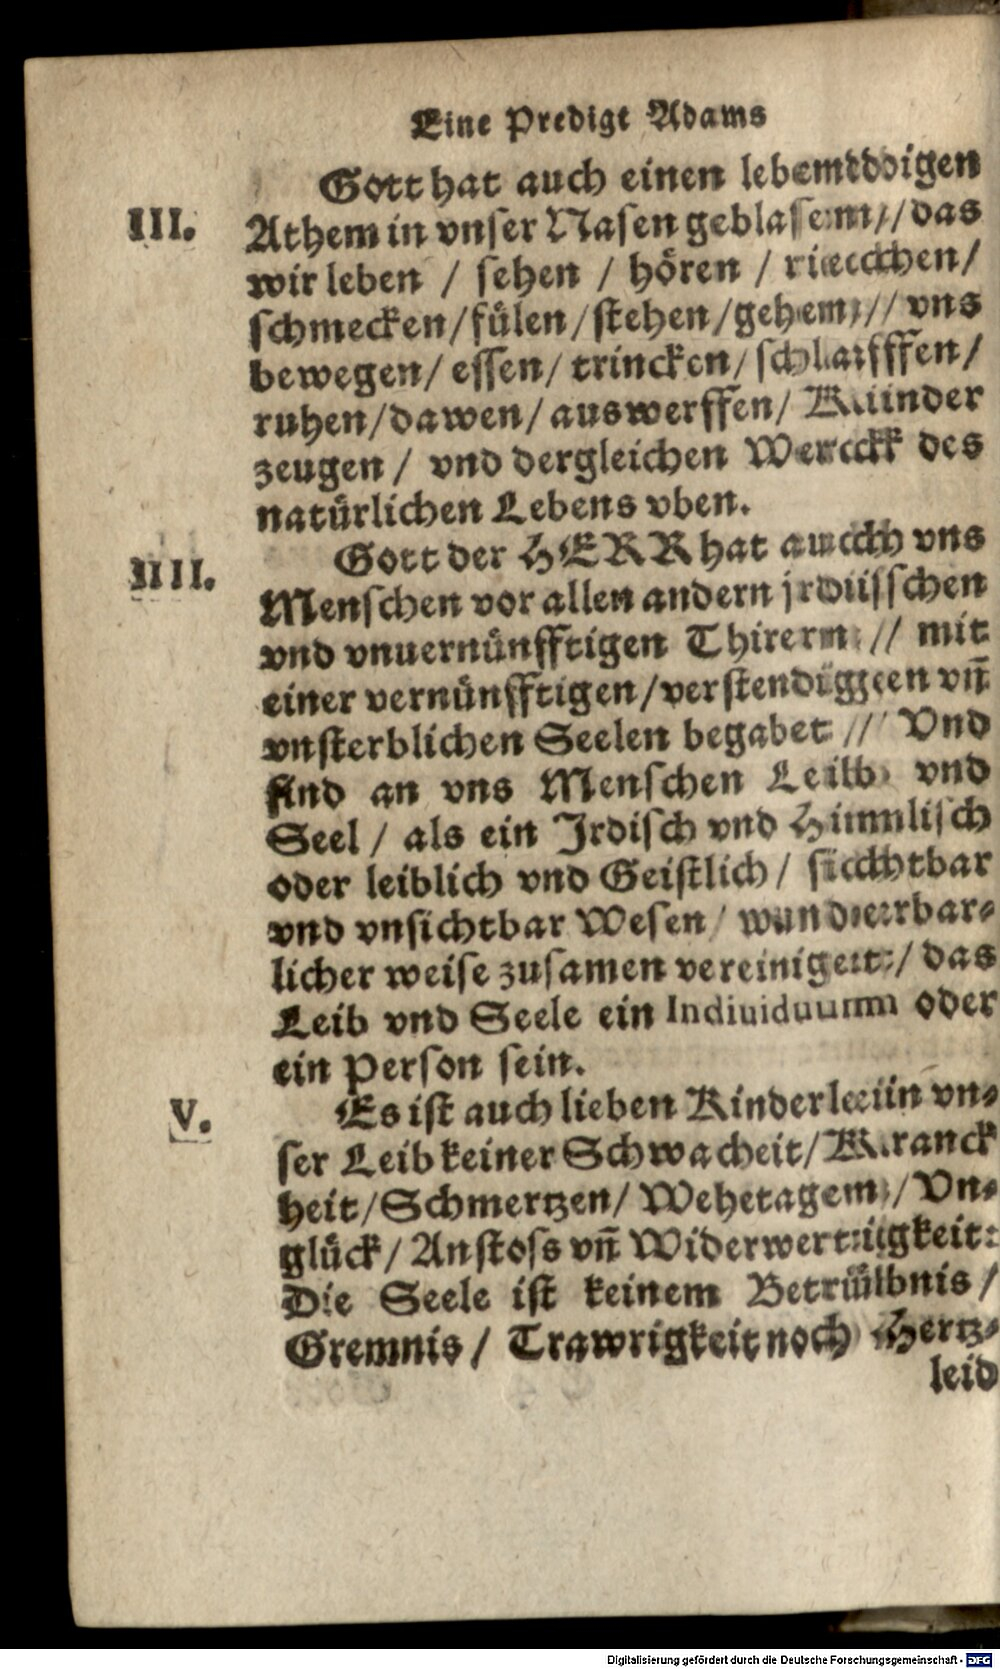 Eine Predigt Adams
Gott hat auch einen lebendigen
III.
Athem in vnser Nasen geblasen / das
wir leben / sehen / hören / riechen /
schmecken / fülen / stehen / gehen / vns
bewegen / essen / trincken / schlaffen /
ruhen / dawen / auswerffen / Kinder
zeugen / vnd dergleichen Werck des
natürlichen Lebens vben.
Gott der HERR hat auch vns
IIII.
Menschen vor allen andern jrdisschen
vnd vnuernünfftigen Thirern / mit
einer vernünfftigen / verstendigen vñ
vnsterblichen Seelen begabet / Vnd
sind an vns Menschen Leib vnd
Seel / als ein Jrdisch vnd Himmlisch
oder leiblich vnd Geistlich / sichtbar
vnd vnsichtbar Wesen / wunderbar-
licher weise zusamen vereiniget / das
Leib vnd Seele ein Indiuiduum oder
ein Person sein.
Es ist auch lieben Kinderlein vn-
V.
ser Leib keiner Schwacheit / Kranck
heit / Schmertzen / Wehetagen / Vn-
glück / Anstoss vñ Widerwertigkeit:
Die Seele ist keinem Betrübnis /
Gremnis / Trawrigkeit noch Hertz-
leid
Digitalisierung gefördert durch die Deutsche Forschungsgemeinschaft - DFG